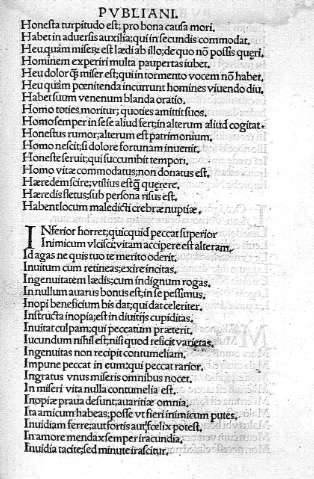 PVBLIANI.
Honesta turpitudo est; pro bona causa mori.
Habet in aduersis auxilia; qui in secundis commodat.
Heu, quàm miserę est lædi ab illo; de quo nõ possis quęri.
Hominem experiri multa paupertas iubet.
Heu dolor ꝗ̃ miser est; qui in tormento vocem nõ habet,
Heu quàm pœnitenda incurrunt homines viuendo diu,
Habet suum venenum blanda oratio.
Homo toties moritur; quoties amittit suos.
Homo semper in sese aliud fert; in alterum aliud cogitat.
Honestus rumor; alterum est patrimonium.
Homo nescit; si dolore fortunam inuenit.
Honeste seruit; qui succumbit tempori.
Homo vitæ commodatus; non donatus est.
Hæredem scire; vtilius est ꝗ̃ quęrere,
Hæredis fletus; sub persona risus est.
Habent locum maledicti crebræ nuptiæ.
INferior horret; quicquid peccat superior
Inimicum vlcisci; vitam accipere est alteram,
Id agas ne quis tuo te merito oderit.
Inuitum cum retineas; exire incitas.
Ingenuitatem lædis; cum indignum rogas.
In nullum auarus bonus est; in se pessimus,
Inopi beneficium bis dat; qui dat celeriter.
Instructa inopia; est in diuitijs cupiditas.
Inuitat culpam; qui peccatum præterit.
Iucundum nihil est; nisi quod reficit varietas,
Ingenuitas non recipit contumeliam,
Impune peccat in eum; qui peccat rarior.
Ingratus vnus miseris omnibus nocet.
In miseri vita nulla contumelia est.
Inopiæ praua desunt; auaritiæ omnia,
Ita amicum habeas; posse vt fieri inimicum putes.
Inuidiam ferre; aut fortis aut fœlix potest,
In amore mendax semper iracundia,
Inuidia tacite; sed minute irascitur.